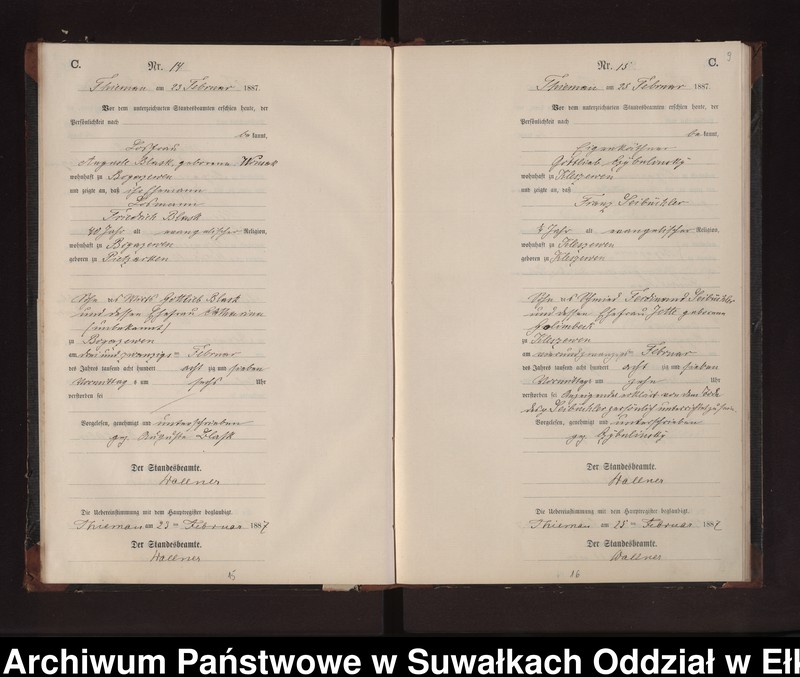 C.
Nr. 14
Thiemau am 23 Februar 1887.
Vor dem unterzeichneten Standesbeamten erschien heute, der
Persönlichkeit nach
be kannt,
Losfrau
Auguste Black, geborene
wohnhaft zu Bogazewen
und zeigte an, daß ihr Ehemann
Losmann
Friedrich Black
40 Jahr alt evangelischer Religion,
wohnhaft zu Bogazewen
geboren zu Pietzarken
Sohn des Wirth Gottlieb Black
und dessen Ehefrau Katharina
(unbekannt)
zu Bogazewen
am drei und zwanzigs ten Februar
des Jahres tausend acht hundert acht zig und sieben
Vormittag s um sechs Uhr
verstorben sei
Vorgelesen, genehmigt und unterschrieben
gez. Auguste Black
Der Standesbeamte.
Wallner
Die Uebereinstimmung mit dem Hauptregister beglaubigt.
Thiemau am 23 ten Februar 1887
Der Standesbeamte.
Wallner
15
C.
9
Nr. 15
Thiemau am 25 Februar 1887.
Vor dem unterzeichneten Standesbeamten erschien heute, der
Persönlichkeit nach
be kannt,
Eigenkäthner
Gottlieb Czybulinsky
wohnhaft zu Kleszewen
und zeigte an, daß
Franz Seibüchler
4 Jahr alt evangelischer Religion,
wohnhaft zu Kleszewen
geboren zu Kleszewen
Sohn des Schmied Ferdinand Seibüchler
und dessen Ehefrau Jette geborene
zu Kleszewen
am vierundzwanzigs ten Februar
des Jahres tausend acht hundert acht zig und sieben
Vormittags um zehn Uhr
verstorben sei Anzeigender erklärt von dem Tode
des Seibüchler persönlich unterrichtet zu sein
Vorgelesen, genehmigt und unterschrieben
gez. Czybulinsky
Der Standesbeamte.
Wallner
Die Uebereinstimmung mit dem Hauptregister beglaubigt.
Thiemau am 25 ten Februar 1887
Der Standesbeamte.
Wallner
16
Archiwum Państwowe w Suwałkach Oddział w Eł